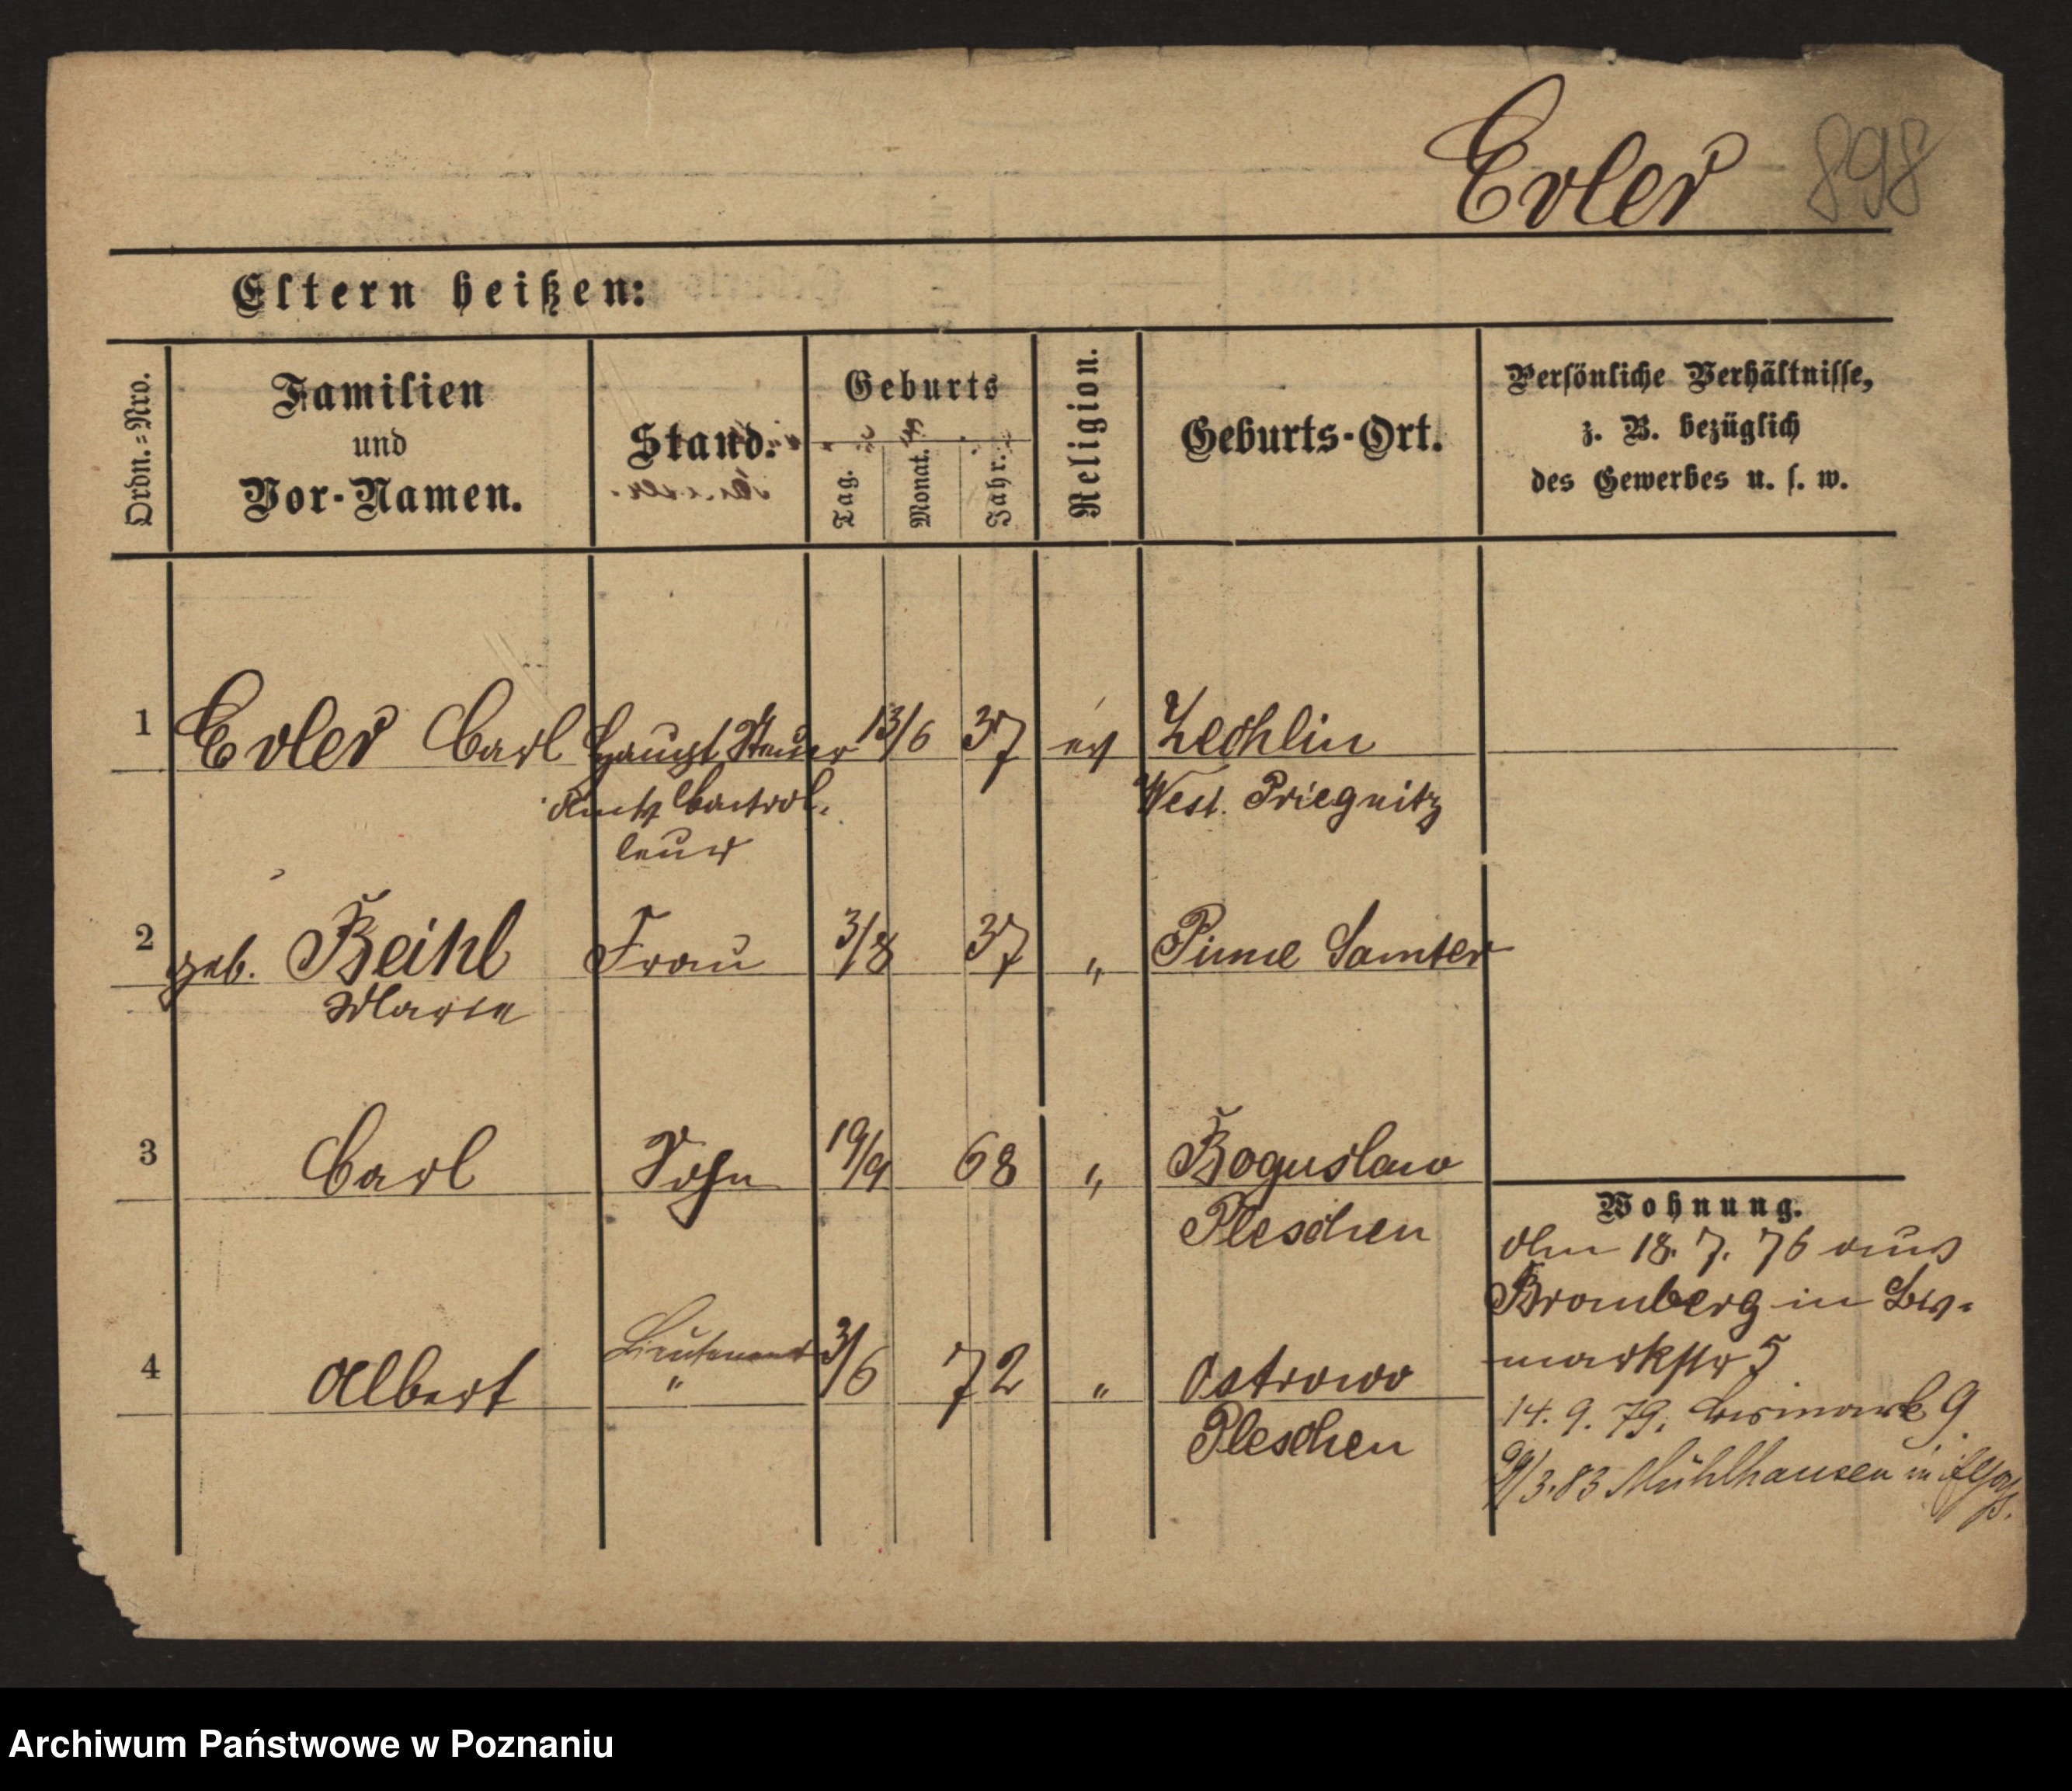 Evler 898
Eltern heißen:
Ordn.=Nro.
Familien
und
Vor-Namen.
Stand.
Geburts
Tag.
Monat.
Jahr.
Religion.
Geburts-Ort.
Persönliche Verhältnisse,
z. B. bezüglich
des Gewerbes u. s. w.
1 Evler Carl Haupt Steuer 13/6 37 ev Zechlin
Amts Control-
leur
West. Priegnitz
2 geb. Beihl Frau 3/8 37 " Pinne Samter
Marie
3 Carl Sohn 19/9 68 " Boguslaw
Pleschen
4 Albert Lieutenant 3/6 72 " Ostrowo
"
Pleschen
Wohnung.
Am 18. 7. 76 aus
Bromberg in Bis-
markstr 5
14. 9. 79. Bismark 9.
29/3.83 Mühlhausen in Elsaß.
Archiwum Państwowe w Poznaniu